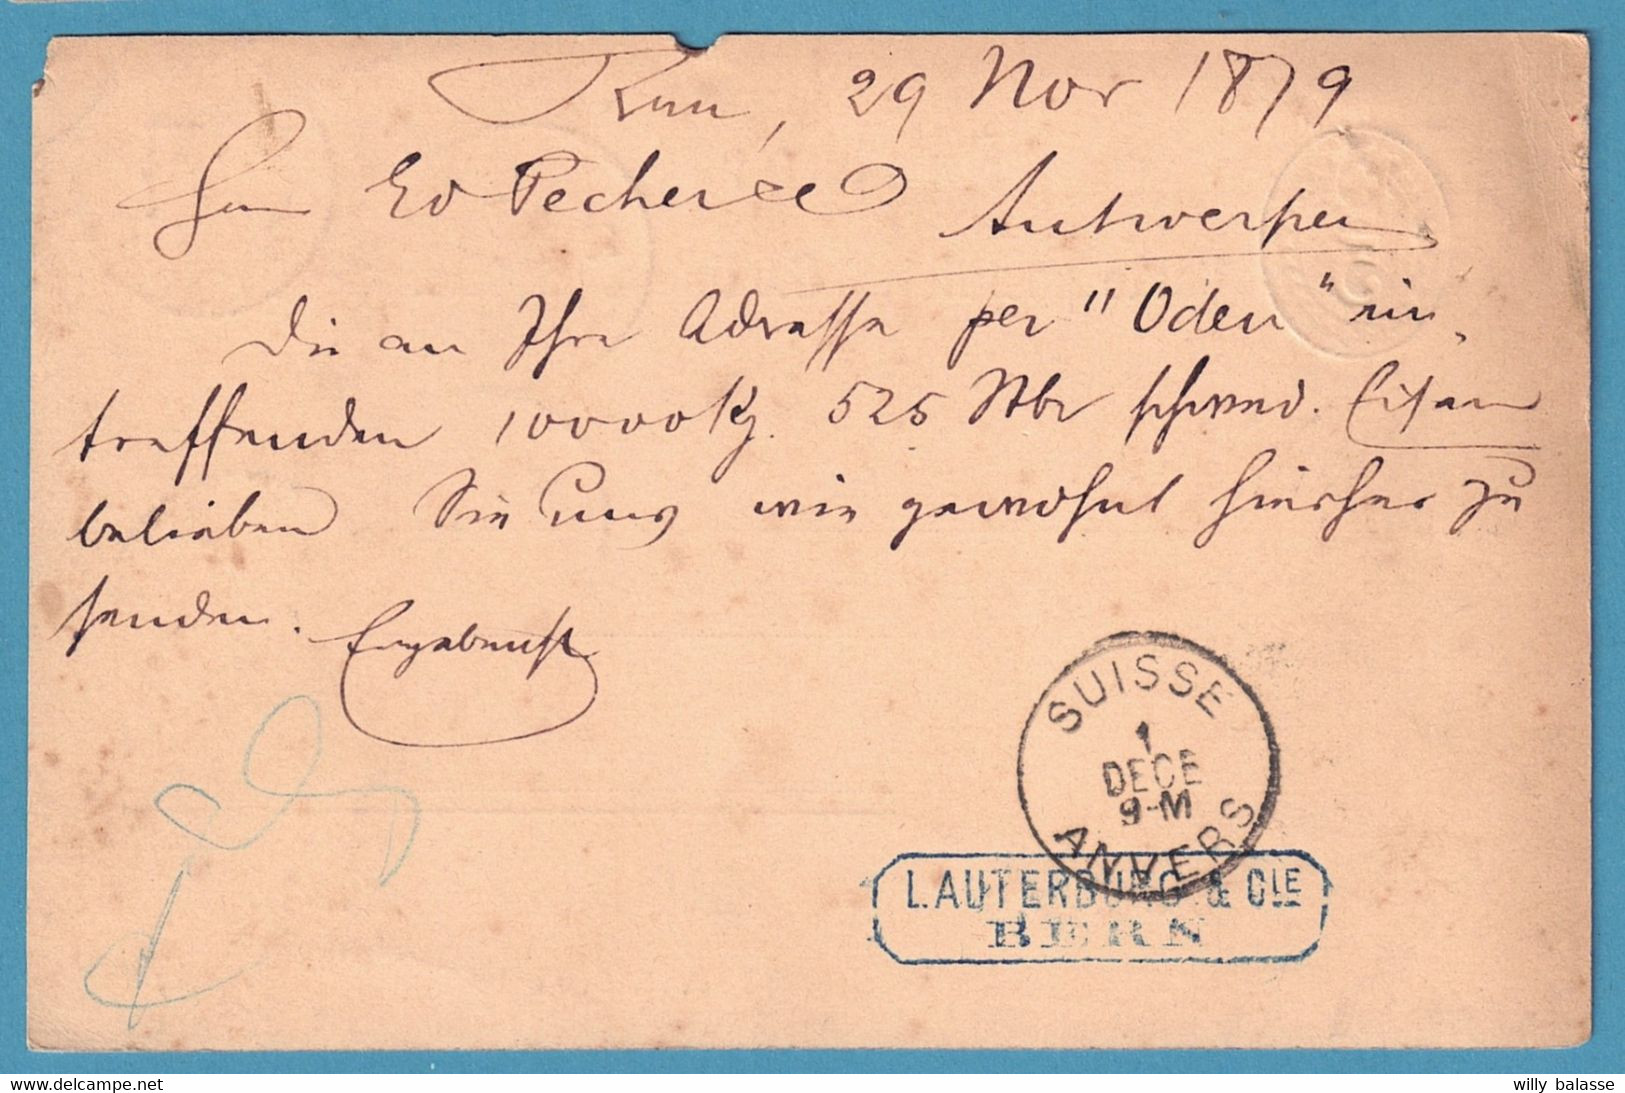 Bern, 29 Nov 1879
Herrn Ed Pecher & Ce
Antwerpen
Die an Ihre Adresse per "Oden" ein-
treffenden 10000 Kg. 525 Stbe schwed. Eisen
belieben Sie uns wie gewohnt hierher zu
senden. Ergebenst
SUISSE
1
DECE
9-M
ANVERS
L. AUTERBURG & CIE
BERN
willy balasse